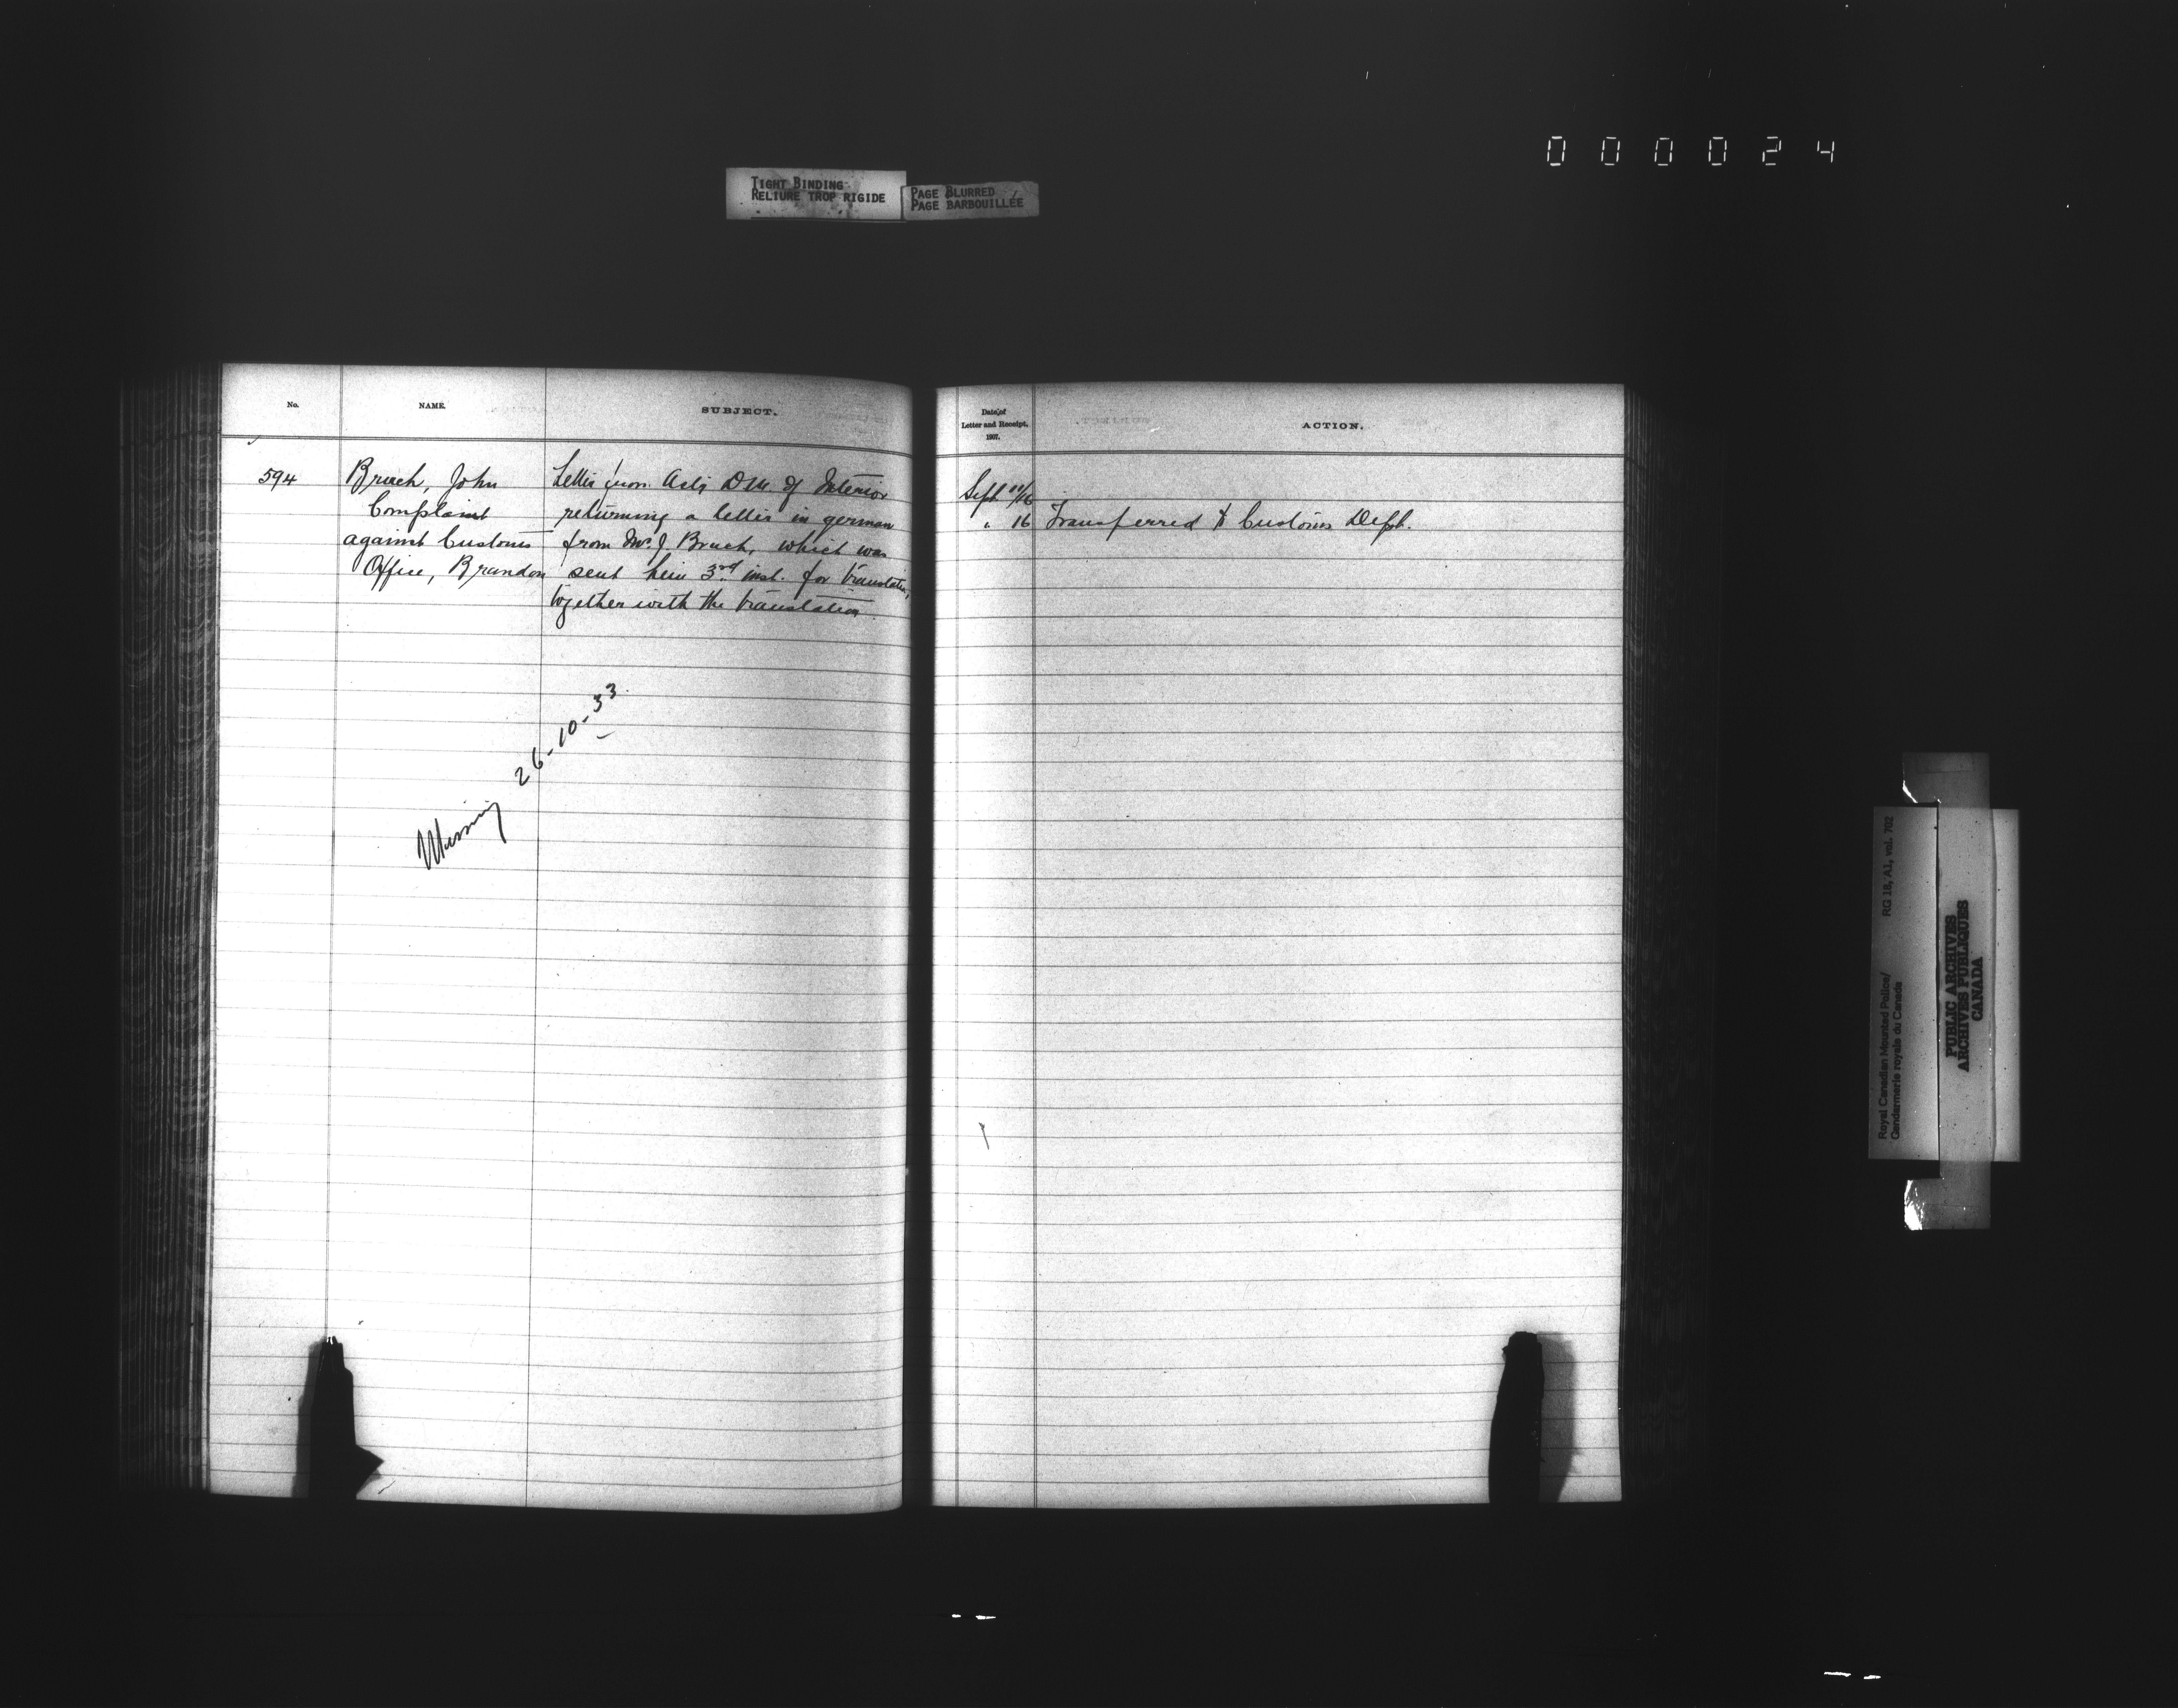 000024
TIGHT BINDING
RELIURE TROP RIGIDE
PAGE BLURRED
PAGE BARBOUILLÉE
No.
NAME.
SUBJECT.
594
Bruch, John
Complaint
against Customs
Office, Brandon
Letter from Actg D.M. of Interior
returning a letter in german
from Mr. J. Bruch, which was
sent him 3rd inst. for translation,
together with the translation.
Missing 26-10-33
Date of
Letter and Receipt.
1907.
ACTION.
Sept 11/16
" 16 Transferred to Customs Dept.
Royal Canadian Mounted Police/ RG 18, A1, vol. 702
Gendarmerie royale du Canada
PUBLIC ARCHIVES
ARCHIVES PUBLIQUES
CANADA